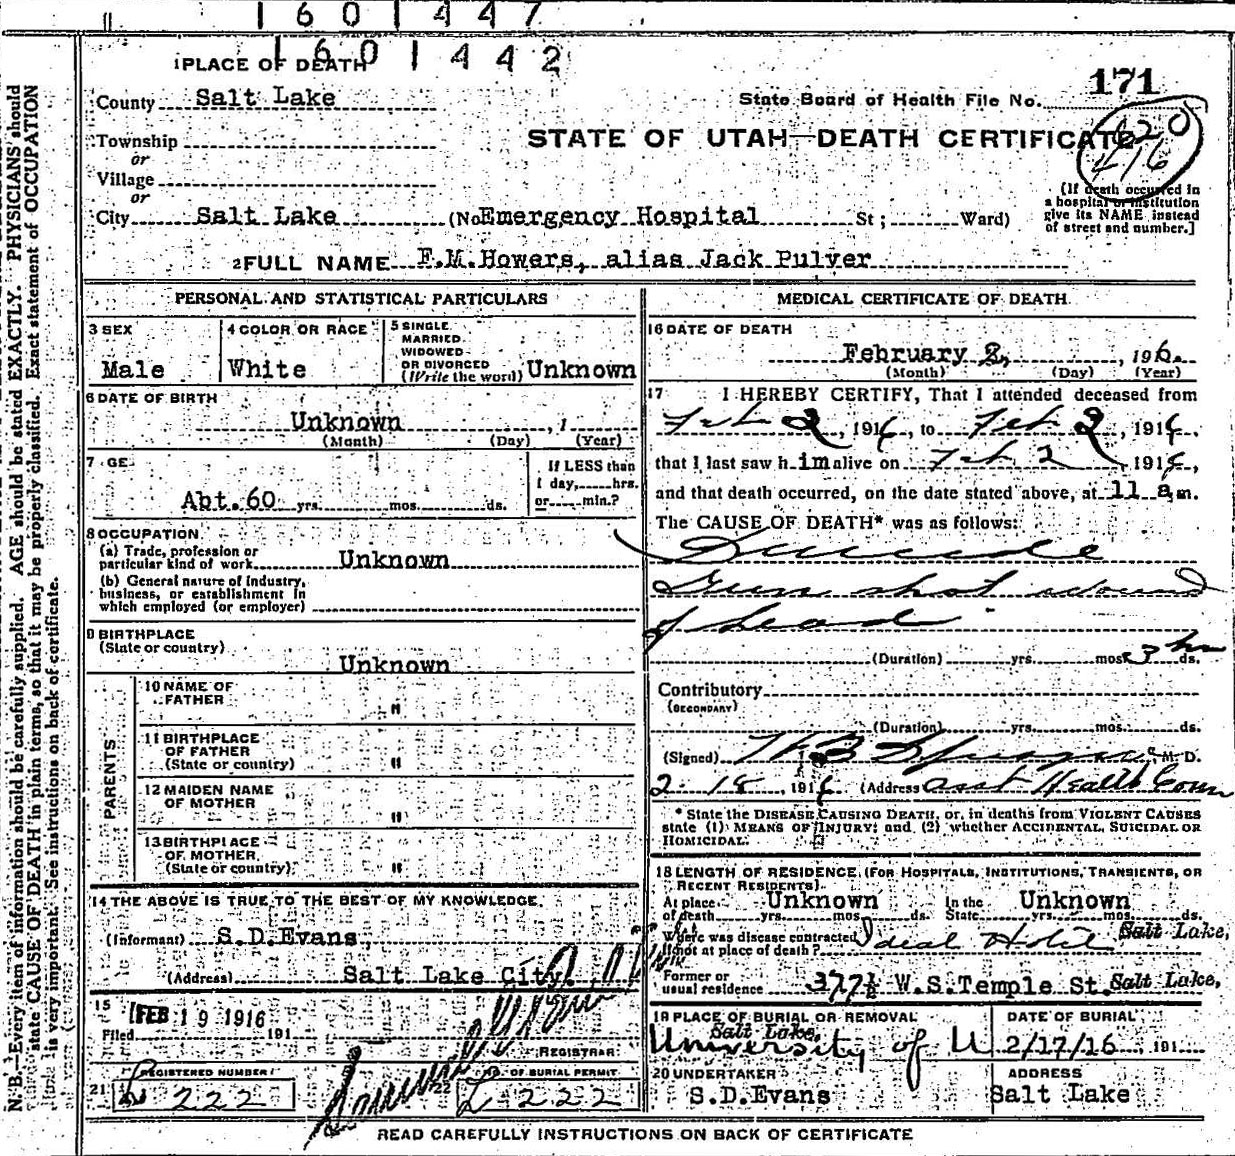 1 6 0 1 4 4 7
1 6 0 1 4 4 2
1 PLACE OF DEATH
171
County Salt Lake
State Board of Health File No.
STATE OF UTAH—DEATH CERTIFICATE
Township
or
Village
or
City Salt Lake (No Emergency Hospital St; Ward)
(If death occurred in a hospital or institution give its NAME instead of street and number.]
2 FULL NAME F.M.Howers, alias Jack Pulver
PERSONAL AND STATISTICAL PARTICULARS
3 SEX
Male
4 COLOR OR RACE
White
5 SINGLE
MARRIED
WIDOWED
OR DIVORCED
(Write the word) Unknown
6 DATE OF BIRTH
Unknown , 1
(Month) (Day) (Year)
7 GE
Abt.60 yrs. mos. ds.
If LESS than
1 day, hrs.
or min.?
8 OCCUPATION
(a) Trade, profession or
particular kind of work Unknown
(b) General nature of industry,
business, or establishment in
which employed (or employer)
9 BIRTHPLACE
(State or country)
Unknown
PARENTS
10 NAME OF
FATHER "
11 BIRTHPLACE
OF FATHER
(State or country) "
12 MAIDEN NAME
OF MOTHER "
13 BIRTHPLACE
OF MOTHER
(State or country) "
14 THE ABOVE IS TRUE TO THE BEST OF MY KNOWLEDGE
(Informant) S.D.Evans,
(Address) Salt Lake City.
15
Filed FEB 19 1916 191
REGISTRAR
21 REGISTERED NUMBER
L 222
22 OF BURIAL PERMIT
L 222
MEDICAL CERTIFICATE OF DEATH
16 DATE OF DEATH
February 2, , 1916.
(Month) (Day) (Year)
17 I HEREBY CERTIFY, That I attended deceased from
Feb 2, 1916, to Feb 2, 1916,
that I last saw him alive on Feb 2, 1916,
and that death occurred, on the date stated above, at 11 a.m.
The CAUSE OF DEATH* was as follows:
Suicide
Gun shot wound
of head
(Duration) yrs. mos. 3 hr ds.
Contributory
(SECONDARY)
(Duration) yrs. mos. ds.
(Signed) M. D.
2-18, 1916 (Address) asst Health Com
* State the DISEASE CAUSING DEATH, or, in deaths from VIOLENT CAUSES
state (1) MEANS OF INJURY; and (2) whether ACCIDENTAL, SUICIDAL OR
HOMICIDAL.
18 LENGTH OF RESIDENCE (FOR HOSPITALS, INSTITUTIONS, TRANSIENTS, OR
RECENT RESIDENTS).
At place of death Unknown yrs. mos. ds. In the State Unknown yrs. mos. ds.
Where was disease contracted
if not at place of death? Ideal Hotel Salt Lake,
Former or
usual residence 377½ W.S.Temple St. Salt Lake,
19 PLACE OF BURIAL OR REMOVAL
Salt Lake,
University of U
DATE OF BURIAL
2/17/16 191
20 UNDERTAKER
S.D.Evans
ADDRESS
Salt Lake
READ CAREFULLY INSTRUCTIONS ON BACK OF CERTIFICATE
N.B.—Every item of information should be carefully supplied. AGE should be stated EXACTLY. PHYSICIANS should
state CAUSE OF DEATH in plain terms, so that it may be properly classified. Exact statement of OCCUPATION
is very important. See instructions on back of certificate.